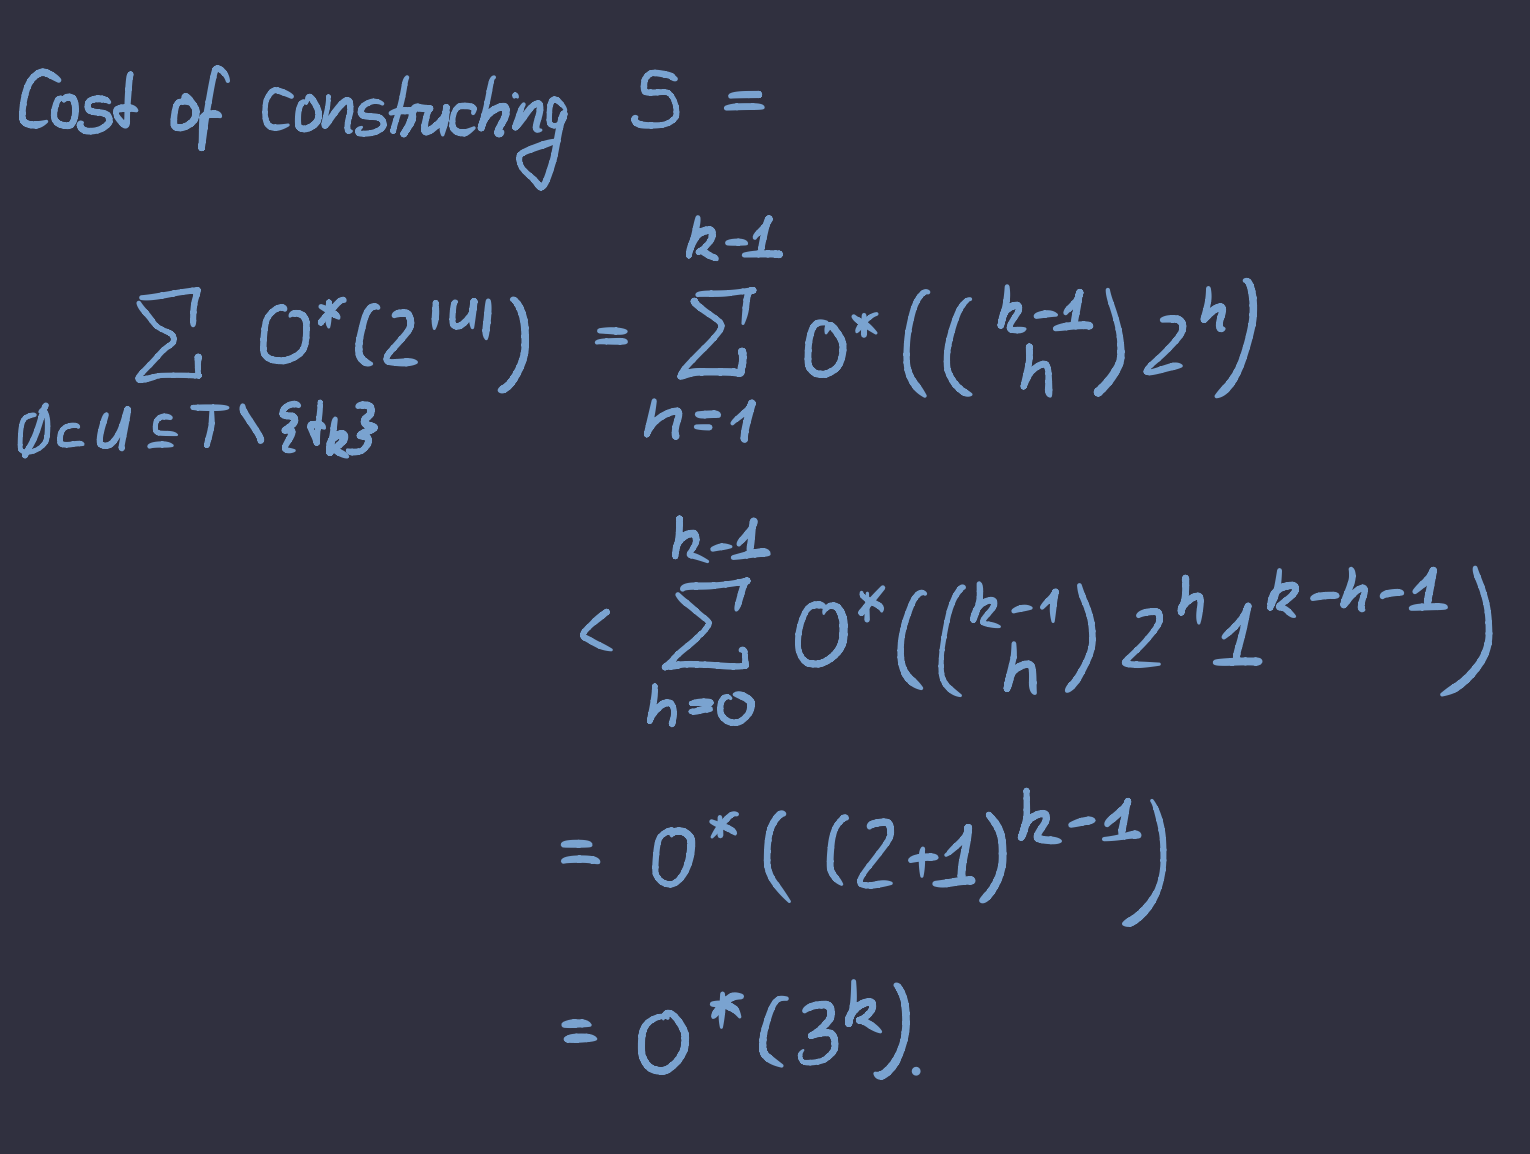 Cost of constructing S =
∑_{∅⊂U⊆T\{t_k}} O*(2^{|U|}) = ∑_{h=1}^{k-1} O*(\binom{k-1}{h} 2^h)
< ∑_{h=0}^{k-1} O*(\binom{k-1}{h} 2^h 1^{k-h-1})
= O*((2+1)^{k-1})
= O*(3^k).